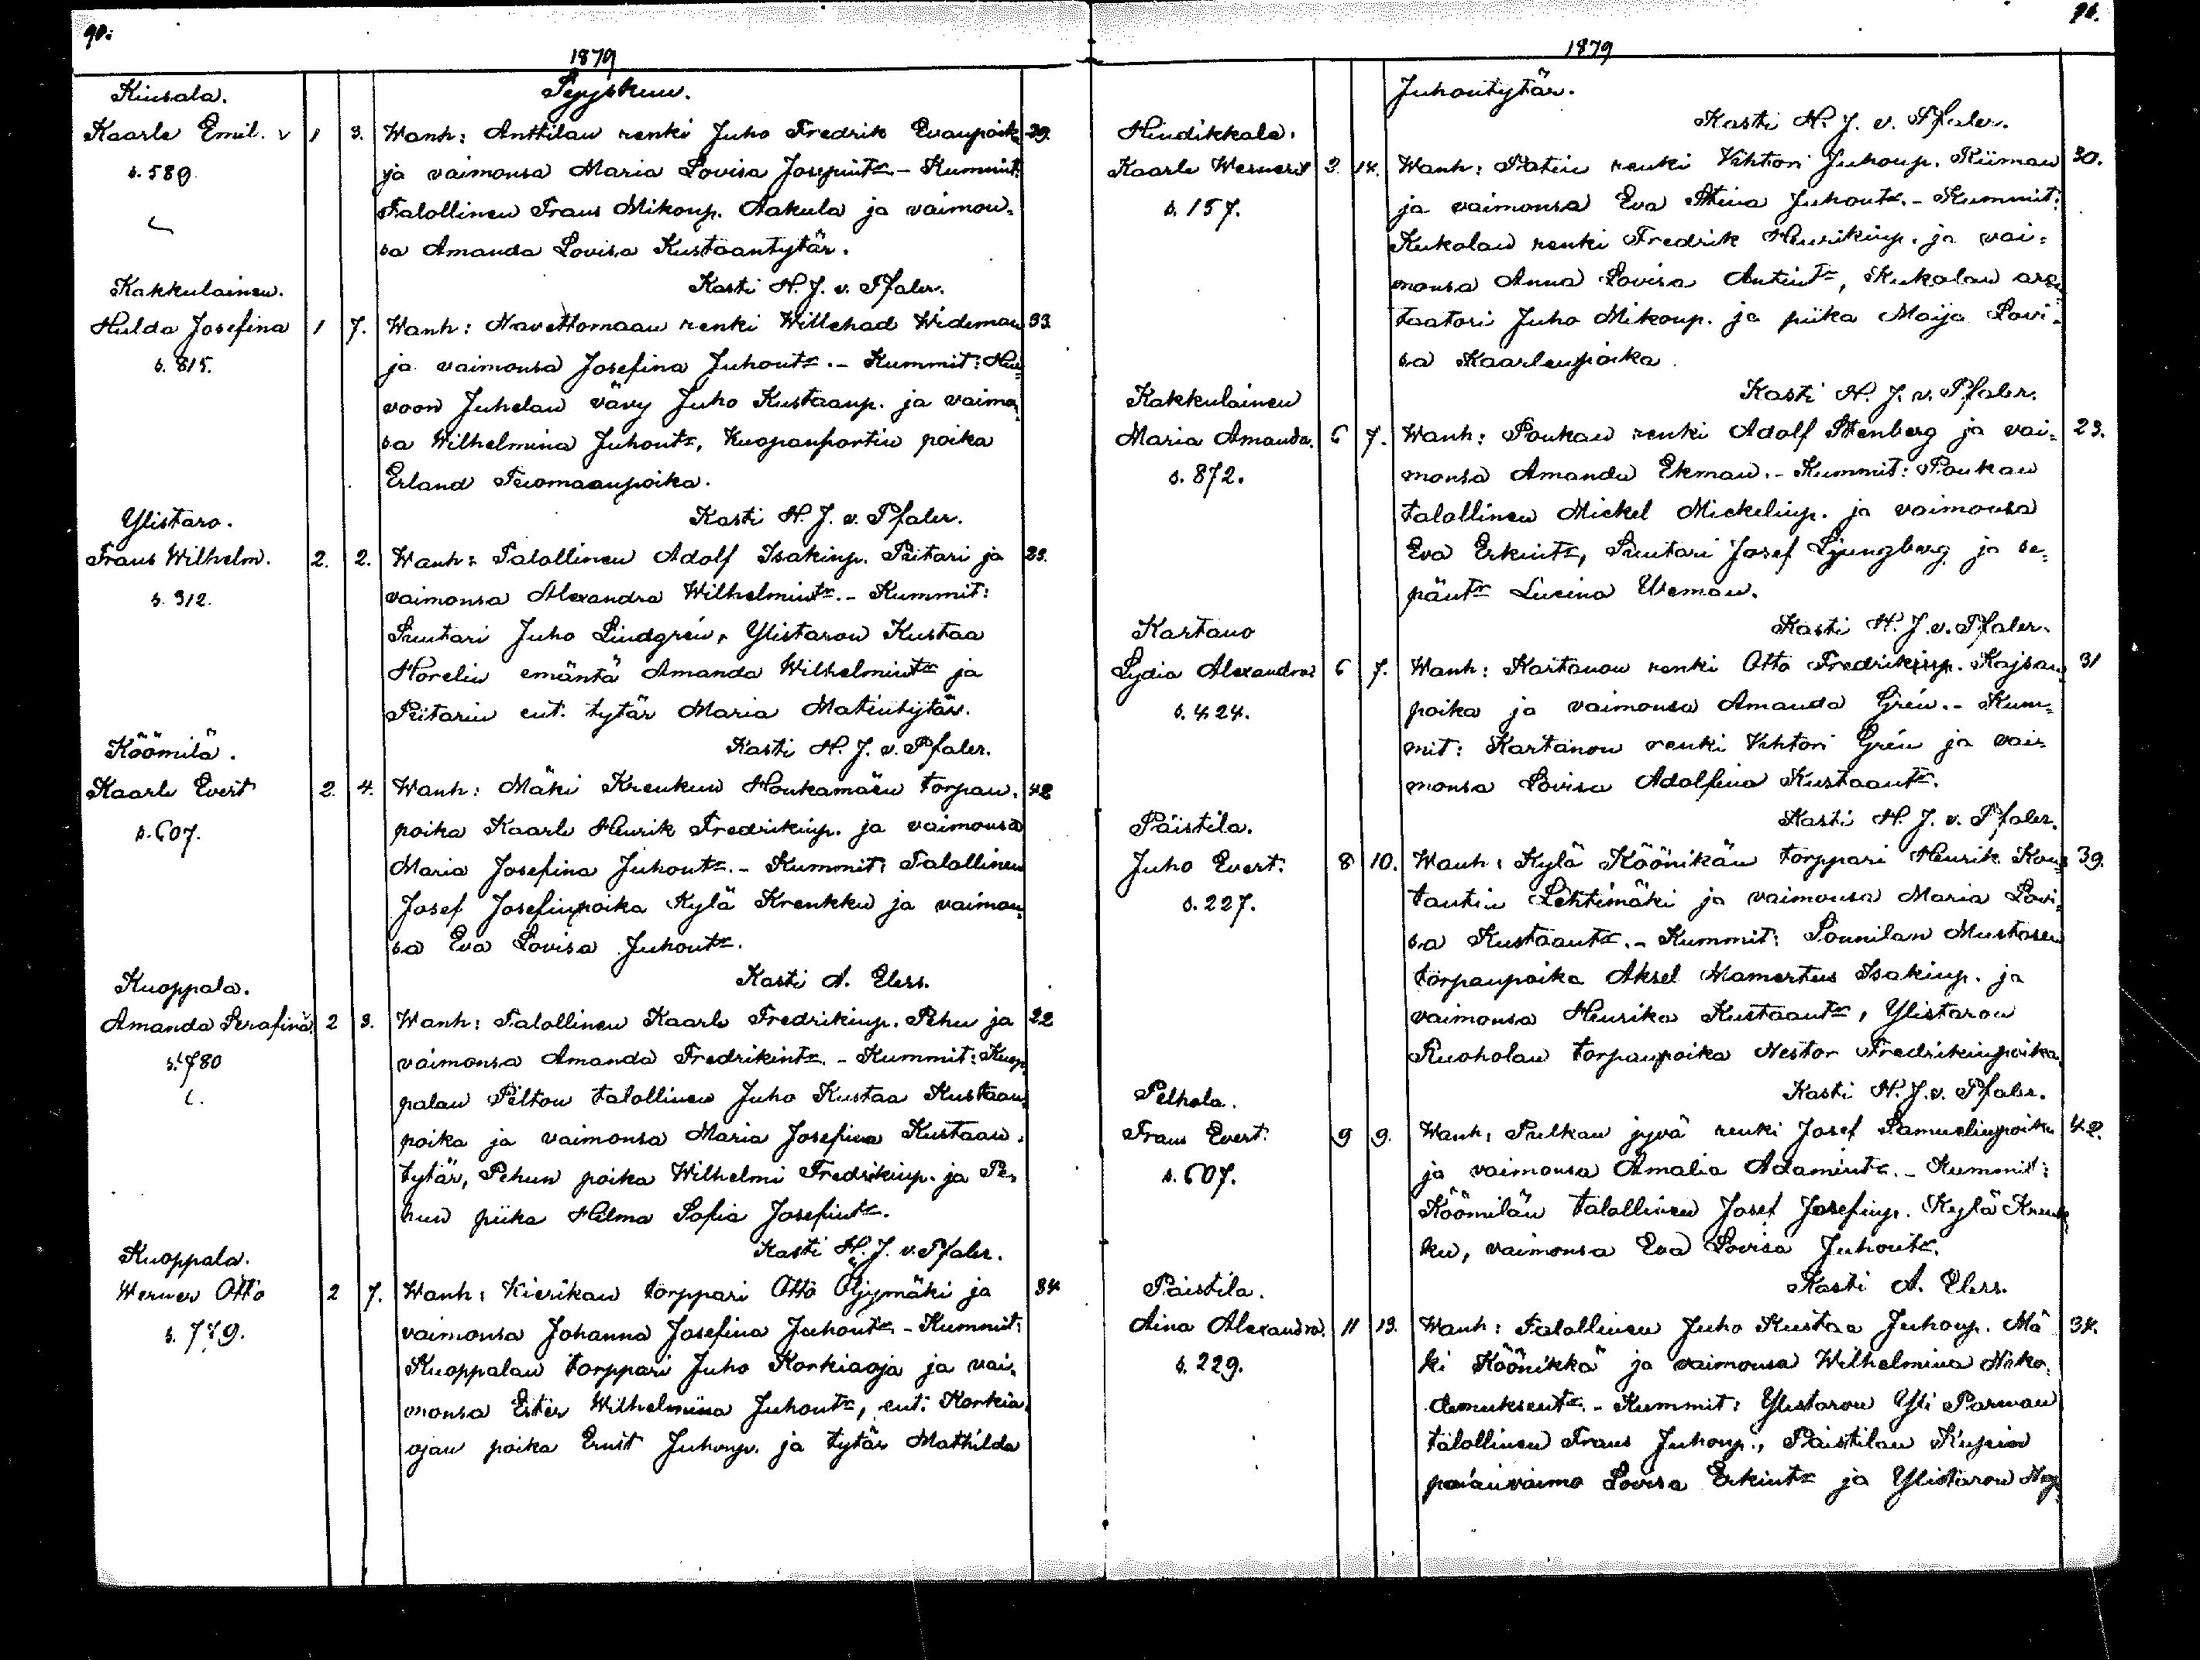 90.
1879
Syyskuu.
Kiusala.
Kaarle Emil. v 1 3. Wanh: Anttilan renki Juho Fredrik Evanpoik 39.
s. 589. ja vaimonsa Maria Lovisa Josepintr. - Kummit:
Talollinen Frans Mikonp. Aakula ja vaimon-
sa Amanda Lovisa Kustaantytär.
Kasti H. J. v. Pfaler.
Kakkulainen.
Hulda Josefina 1 7. Wanh: Navettomaan renki Willehad Wideman 33.
s. 815. ja vaimonsa Josefina Juhontr. - Kummit:
voon Juhelan vävy Juho Kustaanp. ja vaimon
sa Wilhelmina Juhontr, Kuopanportin poika
Erland Tuomaanpoika.
Kasti H. J. v. Pfaler.
Ylistaro.
Frans Wilhelm. 2. 2. Wanh: Talollinen Adolf Isakinp. Pritari ja 23.
s. 312. vaimonsa Alexandra Wilhelmintr. - Kummit:
Suutari Juho Lindgrén, Ylistaron Kustaa
Horelin emäntä Amanda Wilhelmintr ja
Pritarin ent. tytär Maria Matintytär.
Kasti H. J. v. Pfaler.
Köömilä.
Kaarle Evert 2. 4. Wanh: Mäki Krenkun Honkamäen torpan- 42
s. 607. poika Kaarle Henrik Fredrikinp. ja vaimonsa
Maria Josefina Juhontr. - Kummit: Talollinen
Josef Josefinpoika Kylä Krenkku ja vaimon-
sa Eva Lovisa Juhontr.
Kasti A. Elers.
Kuoppala.
Amanda Serafina. 2 3. Wanh: Talollinen Kaarle Fredrikinp. Pehu ja 22
s. 780 vaimonsa Amanda Fredrikintr. - Kummit: Kuop-
palan Pelton talollinen Juho Kustaa Kustaan-
poika ja vaimonsa Maria Josefina Kustaan-
tytär, Pehun poika Wilhelmi Fredrikinp. ja Pe-
hun piika Hilma Sofia Josefintr.
Kasti H. J. v. Pfaler.
Kuoppala.
Werner Otto 2 7. Wanh: Kierikan torppari Otto Öljymäki ja 34
s. 779. vaimonsa Johanna Josefina Juhontr. - Kummit:
Kuoppalan torppari Juho Korkiaoja ja vai-
monsa Ester Wilhelmiina Juhontr, ent. Korkia-
ojan poika Ernst Juhonp. ja tytär Mathilda
1879
Juhontytär.
Kasti H. J. v. Pfaler.
Hindikkala.
Kaarle Wernerd 3. 14. Wanh: Patin renki Vihtori Juhonp. Kiiman 30.
s. 157. ja vaimonsa Eva Stina Juhontr. - Kummit:
Kukolan renki Fredrik Henrikinp. ja vai-
monsa Anna Lovisa Antintr, Kukolan aren
taatori Juho Mikonp. ja piika Maija Lovi-
sa Kaarlenpoika
Kasti H. J. v. Pfaler.
Kakkulainen
Maria Amanda. 6 7. Wanh: Poukan renki Adolf Stenberg ja vai- 23.
s. 872. monsa Amanda Ekman. - Kummit: Poukan
talollinen Mickel Mickelinp. ja vaimonsa
Eva Erkintr, Suutari Josef Ljungberg ja se-
päntr Lucina Useman.
Kasti H. J. v. Pfaler.
Kartano
Lydia Alexandra 6 7. Wanh: Kartanon renki Otto Fredrikinp. Kajsan 31
s. 424. poika ja vaimonsa Amanda Grén. - Kum-
mit: Kartanon renki Vihtori Grén ja vai-
monsa Lovisa Adolfina Kustaantr.
Kasti H. J. v. Pfaler.
Päistilä.
Juho Evert. 8 10. Wanh: Kylä Köönikän torppari Henrik Kons 39.
s. 227. tantin Lehtimäki ja vaimonsa Maria Lovi-
sa Kustaantr. - Kummit: Sonnilan Mustasen
torpanpoika Aksel Mamertus Isakinp. ja
vaimonsa Henrika Kustaantr, Ylistaron
Ruoholan torpanpoika Nestor Fredrikinpoika.
Kasti H. J. v. Pfaler.
Pelhola.
Frans Evert. 9 9. Wanh: Pulkan jyvä renki Josef Samuelinpoika 42.
s. 607. ja vaimonsa Amalia Adamintr. - Kummit:
Köömilän talollinen Josef Josefinp. Kylä Krenk
ku, vaimonsa Eva Lovisa Juhontr.
Kasti A. Elers.
Päistila.
Aina Alexandra. 11 13. Wanh: Talollinen Juho Kustaa Juhonp. Mä 34.
s. 229. ki Köönikkä ja vaimonsa Wilhelmina Niko-
demuksentr. - Kummit: Ylistaron Yli Parwan
talollinen Frans Juhonp., Päistilan Kupin
pojanvaimo Lovisa Erkintr ja Ylistaron